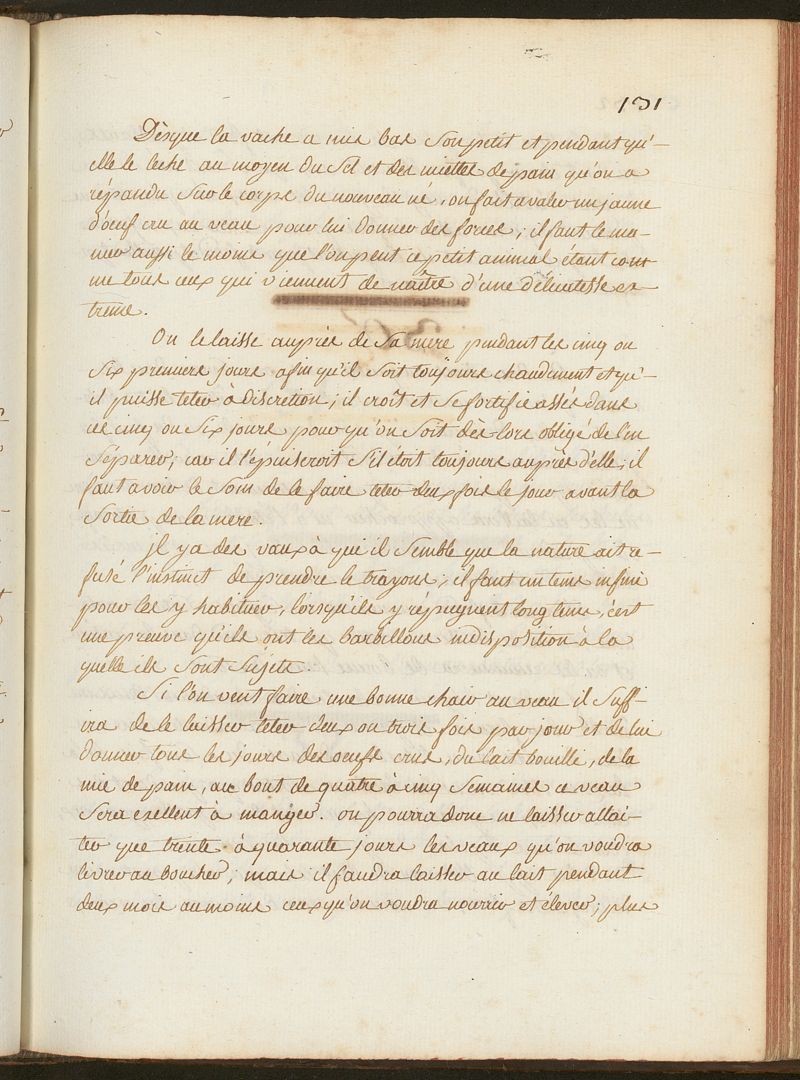 131
Dèsque la vache a mis bas son petit et pendant qu'-
elle le leche au moyen du sel et des miettes de pain qu'on a
répandu sur le corps du nouveau né, on fait avaler un jaune
d'oeuf cru au veau pour lui donner des forces; il faut le ma-
nier aussi le moins que l'on peut ce petit animal étant com-
me tous ceux qui viennent de naître d'une délicatesse ex-
treme.
On le laisse auprès de sa mere pendant les cinq ou
six premiers jours afin qu'il soit toujours chaudement et qu'-
il puisse teter à discretion; il croît et se fortifie assés dans
ces cinq ou six jours pour qu'on soit dès lors obligé de l'en
séparer; car il l'épuiseroit s'il étoit toujours auprès d'elle; il
faut avoir le soin de le faire teter deux fois le jour avant la
sortie de la mere.
jl y a des vaux à qui il semble que la nature ait re-
fusé l'instinct de prendre le trayons; il faut un tems infini
pour les y habituer, lorsqu'ils y répugnent long tems, c'est
une preuve qu'ils ont les barbillons indisposition à la
quelle ils sont sujets.
Si l'on veut faire une bonne chair au veau il suffi-
ra de le laisser teter deux ou trois fois par jour et de lui
donner tous les jours des oeufs crus, du lait bouilli, de la
mie de pain, au bout de quatre à cinq semaines ce veau
sera exellent à manger. on pourra donc ne laisser allai-
ter que trente à quarante jours les veaux qu'on voudra
livrer au boucher; mais il faudra laisser au lait pendant
deux mois au moins ceux qu'on voudra nourrir et élever; plus